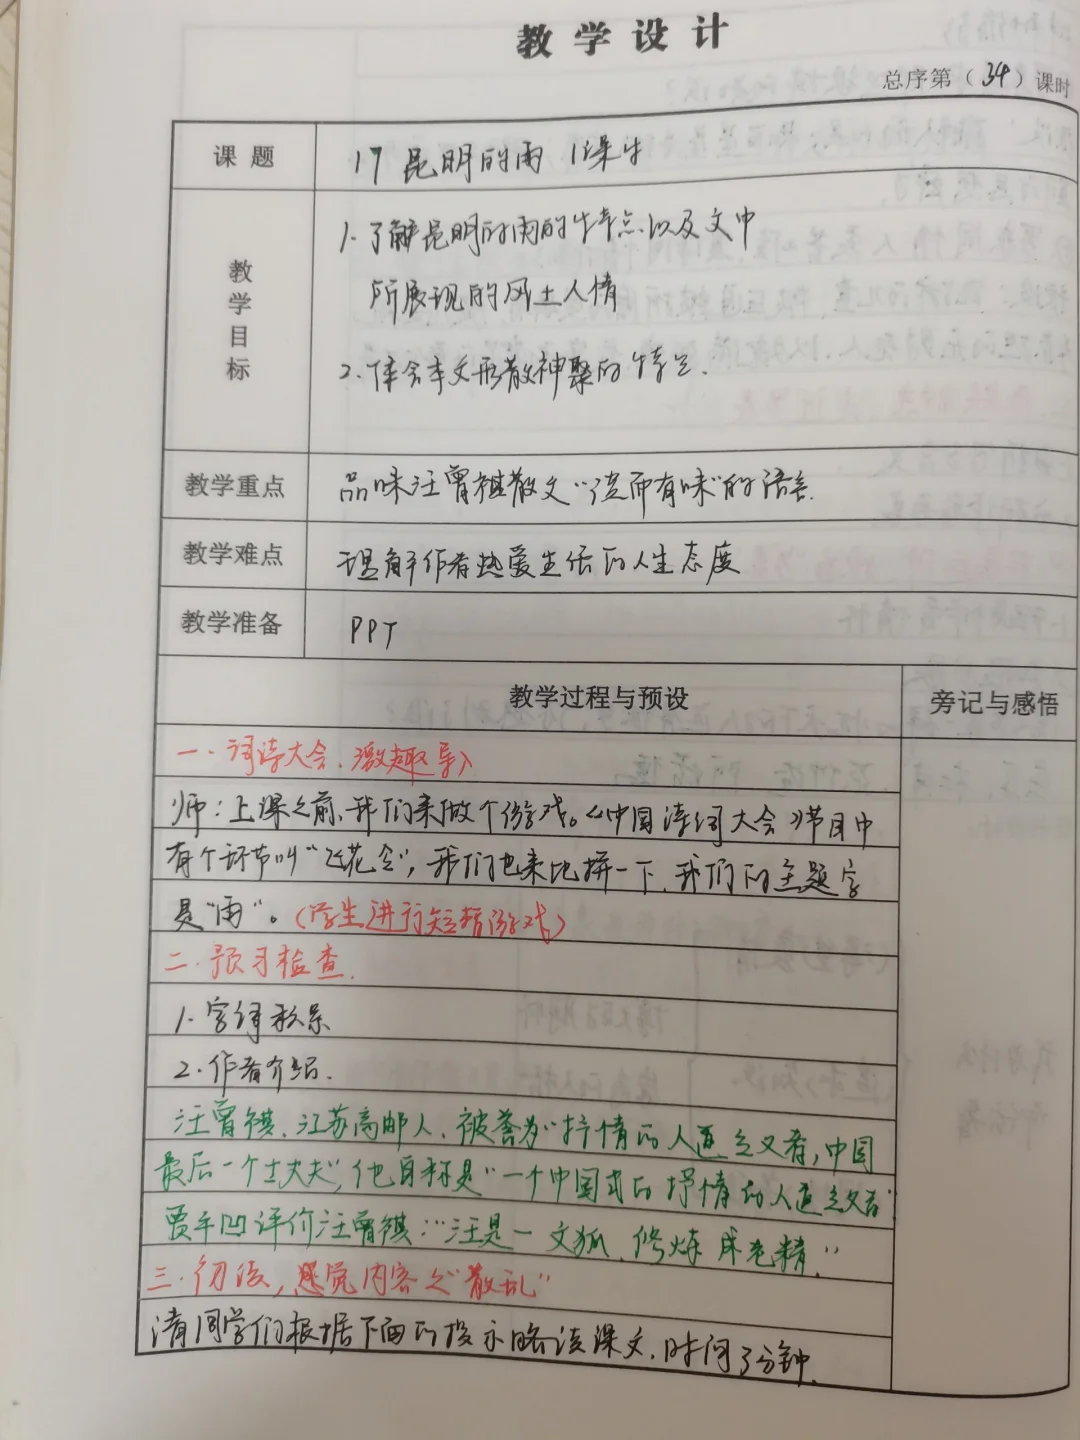 教学设计
总序第（34）课时
课题
17 昆明的雨 1课时
教学目标
1. 了解昆明的雨的特点以及文中
所展现的风土人情
2. 体会本文形散神聚的特点.
教学重点
品味汪曾祺散文“淡而有味”的语言.
教学难点
理解作者热爱生活的人生态度
教学准备
PPT
教学过程与预设
旁记与感悟
一. 词诗大会, 激趣导入
师: 上课之前, 我们来做个游戏。《中国诗词大会》节目中
有个环节叫“飞花令”, 我们也来比拼一下, 我们的主题字
是“雨”。(学生进行短暂游戏)
二. 预习检查.
1. 字词积累
2. 作者介绍.
汪曾祺, 江苏高邮人, 被誉为“抒情的人道主义者, 中国
最后一个士大夫”, 他自称是“一个中国式的抒情的人道主义者”
贾平凹评价汪曾祺: “汪是一文狐, 修炼成老精.”
三. 初读, 感觉内容之“散乱”
请同学们根据下面的提示略读课文, 时间3分钟.